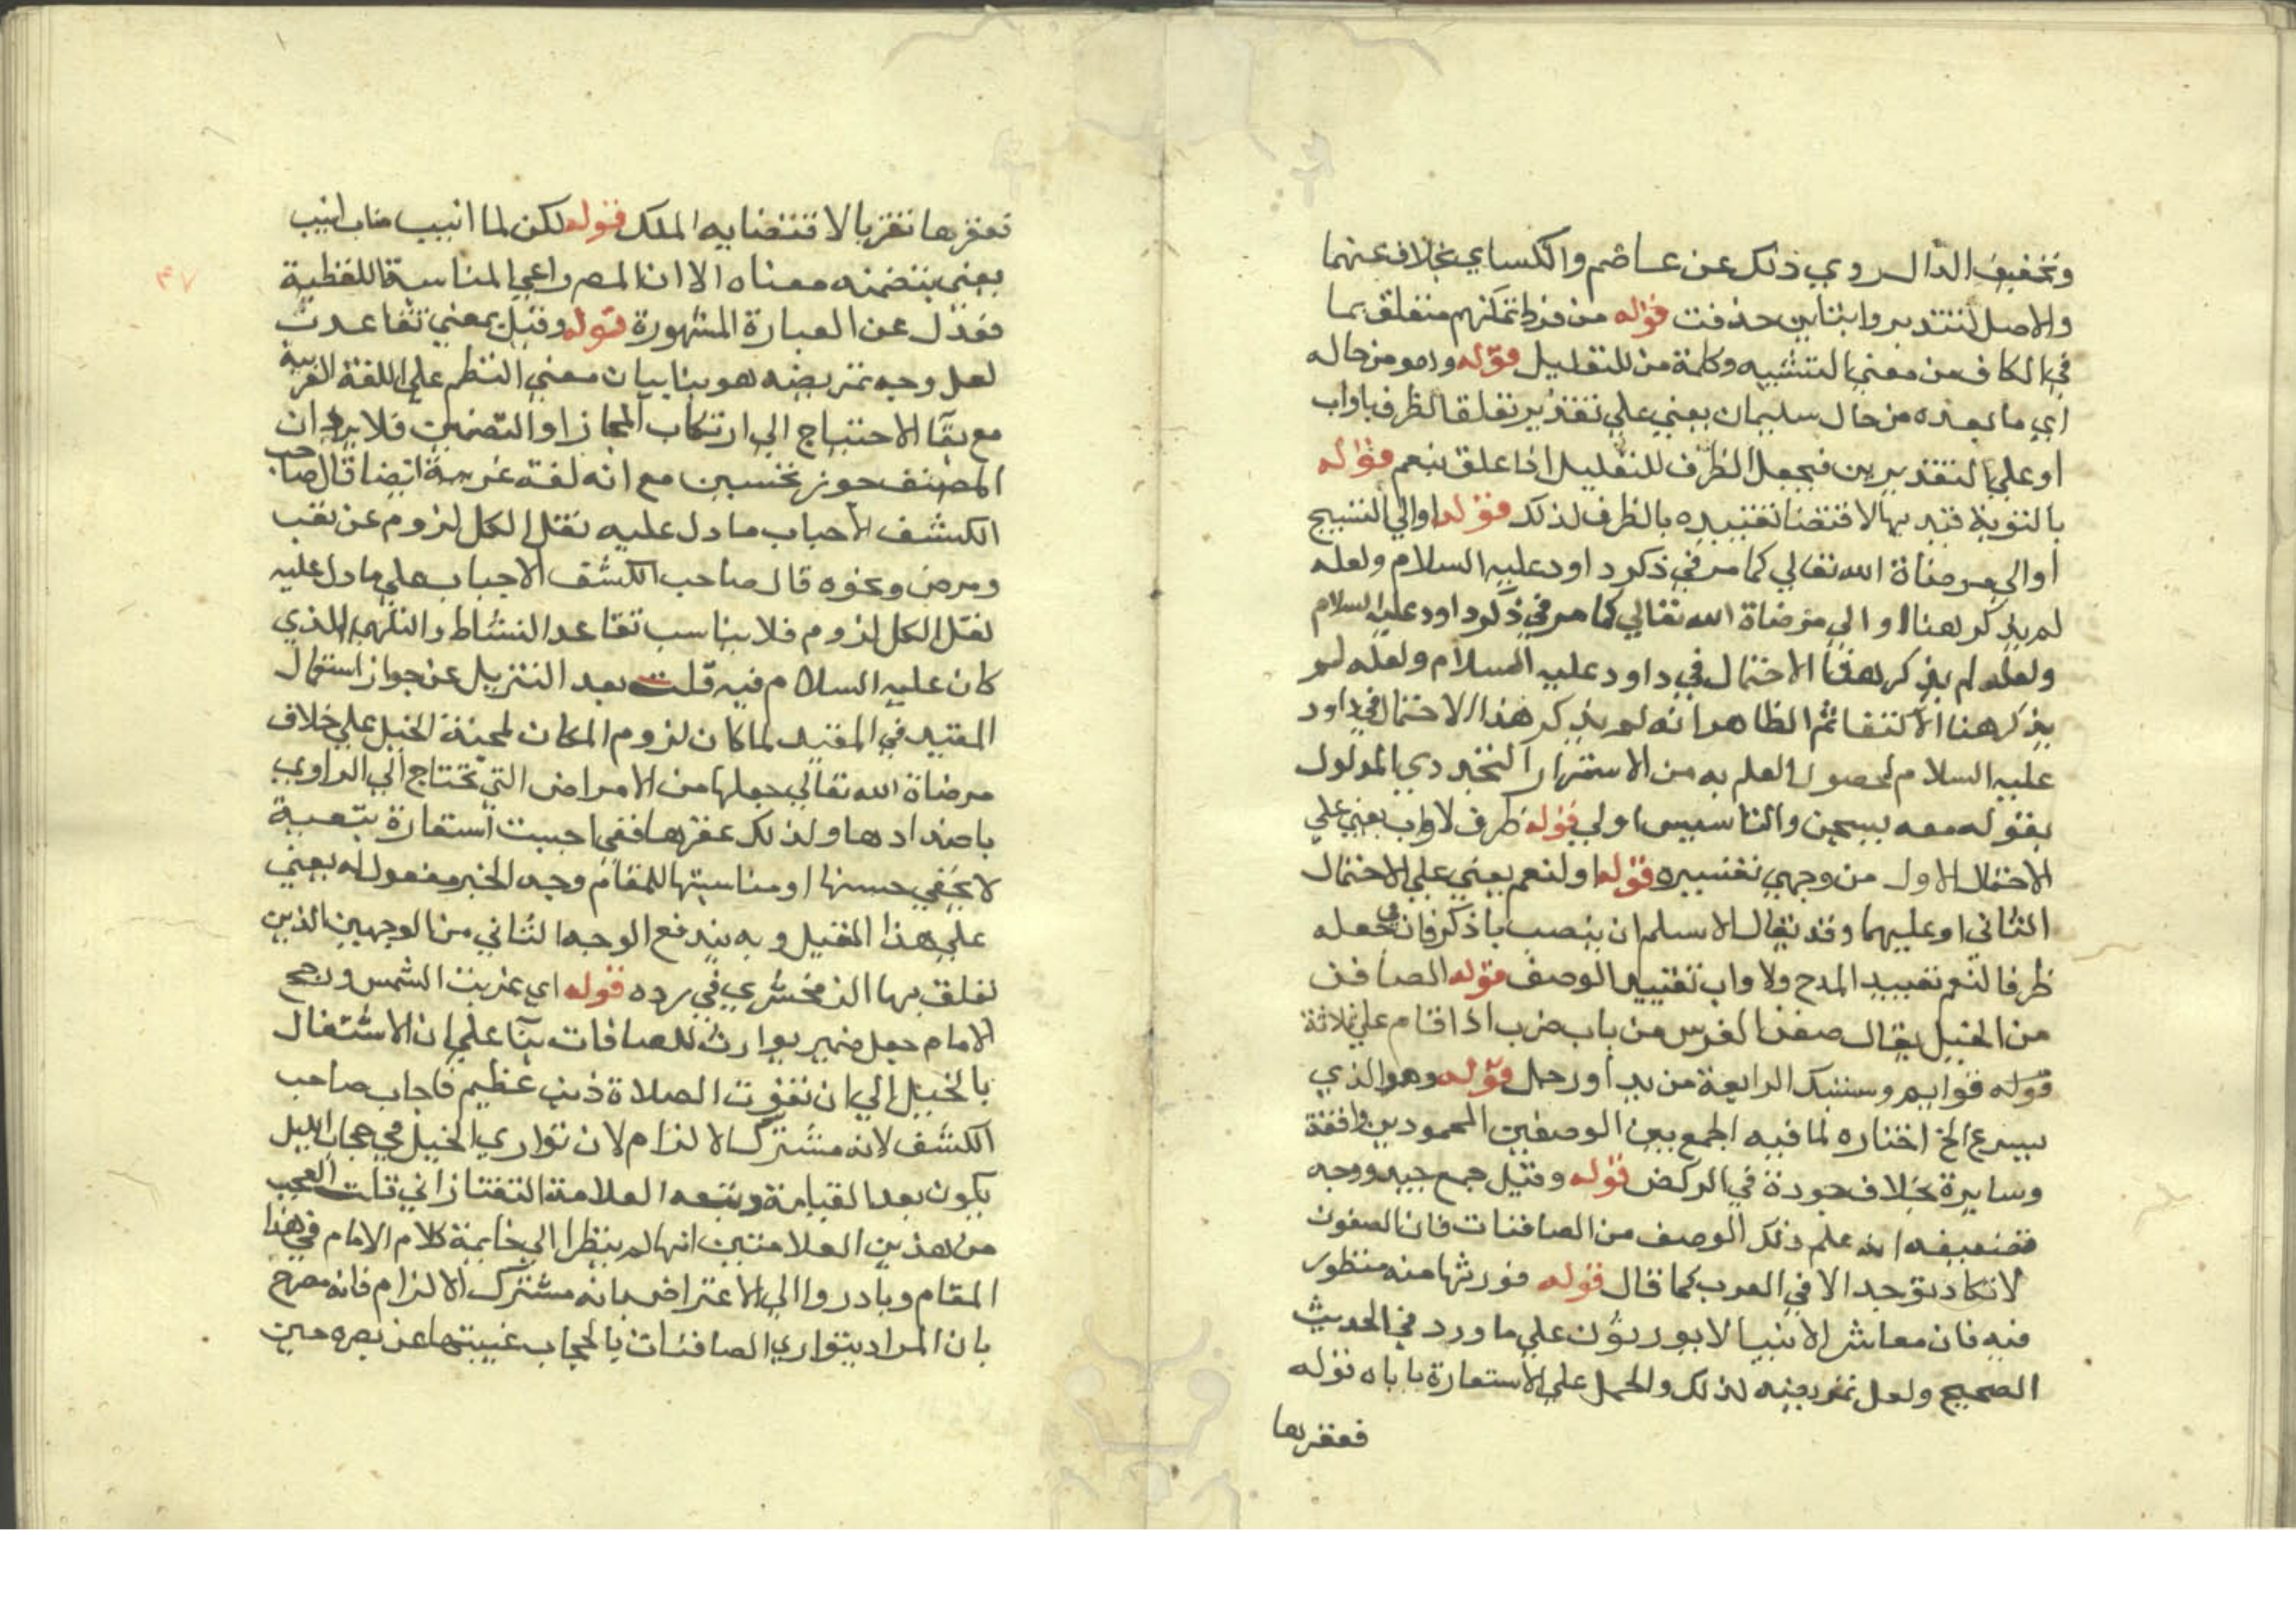 وتخفيف الدال روي ذلك عن عاصم والكساي بخلاف عنهما
والاصل لتتدبروا بتاين حذفت قوله من فرط تمكنهم متعلق بما
في الكاف من معني التشبيه وكلمة من للتعليل قوله وهو من حاله
اي ما بعده من حال سليمان يعني علي تقدير تعلق الظرف باواب
او علي التقديرين فيجعل الظرف للتعليل اذا علق بنعم قوله
بالتوبة قيد بها لاقتضا تقييده بالظرف لذلك قوله او الي التسبيح
او الي مرضاة الله تعالي كما مر في ذكر داود عليه السلام ولعله
لم يذكر هنا او الي مرضاة الله تعالي كما مر في ذكر داود عليه السلام
ولعله لم يذكر هذا الاحتمال في داود عليه السلام ولعله لم
يذكر هنا الاكتفا ثم الظاهر انه لم يذكر هذا الاحتمال في داود
عليه السلام لحصول العلم به من الاستمرار التجددي المدلول
بقوله معه يسبحن والتاسيس اولي قوله ظرف لاواب يعني علي
الاحتمال الاول من وجهي تفسيره قوله او لنعم يعني علي الاحتمال
الثاني او عليهما وقد يقال الاسلم ان ينصب باذكر فان في جعله
ظرفا لنعم تقييد المدح ولاواب تقييد الوصف قوله الصافن
من الخيل يقال صفن الفرس من باب ضرب اذا قام علي ثلاثة
قوله قوايم وسنبك الرابعة من يد او رجل قوله وهو الذي
يسرع الخ اختاره لما فيه الجمع بين الوصفين المحمودين واقفة
وسايرة بخلاف جودة في الركض قوله وقيل جمع جيد ووجه
تضعيفه انه علم ذلك الوصف من الصافنات فان الصفون
لا تكاد توجد الا في العرب كما قال قوله فورثها منه منظور
فيه فان معاشر الانبيا لا يورثون علي ما ورد في الحديث
الصحيح ولعل تمريضه لذلك والحمل علي الاستعارة باباه قوله
فعقرها
فعقرها تقربا لاقتضايه الملك قوله لكن لما انيب مناب انيب
يعني بتضمنه معناه الا ان المص راعي المناسبة اللفظية
فعدل عن العبارة المشهورة قوله وقيل بمعني تقاعدت
لعل وجه تمريضه هو بنا بيان معني النظم علي اللغة الغريبة
مع بقا الاحتياج الي ارتكاب المجاز او التضمين فلا يرد ان
المصنف جوز تخسين مع انه لغة غريبة ايضا قال صاحب
الكشف الاحباب ما دل عليه نقل الكل لزوم عن تعب
ومرض ونحوه قال صاحب الكشف الاحباب علي ما دل عليه
نقل الكل لزوم فلا يناسب تقاعد النشاط والتلهي الذي
كان عليه السلام فيه قلت بعد التنزيل عن جواز استعمال
المقيد في المقيد لما كان لزوم المكان لمحبة الخيل علي خلاف
مرضاة الله تعالي جعلها من الامراض التي تحتاج الي التداوي
باضدادها ولذلك عقرها ففي احببت استعارة تبعية
لا يخفي حسنها ومناسبتها للمقام وجه الخير مفعول له يعني
علي هذا القيل وبه يندفع الوجه الثاني من الوجهين الذين
تعلق بها الزمخشري في رده قوله اي غربت الشمس ورجح
الامام جعل ضمير توارت للصافات بنآ علي ان الاشتغال
بالخيل الي ان تفوت الصلاة ذنب عظيم فاجاب صاحب
الكشف لانه مشترك الالزام لان تواري الخيل في حجاب الليل
يكون بعد القيامة وتبعه العلامة التفتازاني قلت العجب
من هذين العلامتين انهما لم ينظرا الي خاتمة كلام الامام في هذا
المقام وبادروا الي الاعتراض بانه مشترك الالزام فانه مصرح
بان المراد بتواري الصافنات بالحجاب غيبتها عن بصره حين
٤٧